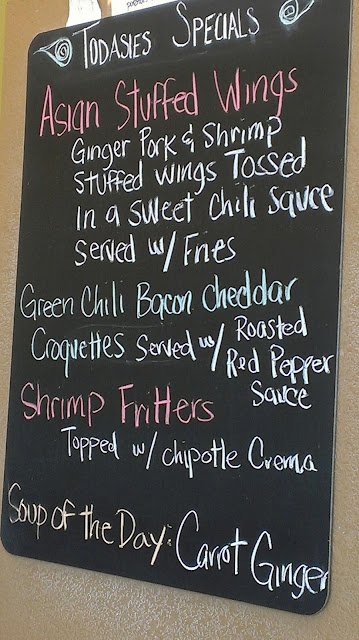 Todasies Specials
Asian Stuffed Wings
Ginger Pork & Shrimp
Stuffed Wings Tossed
In a Sweet Chili Sauce
Served w/ Fries
Green Chili Bacon Cheddar
Croquettes Served w/ Roasted
Red Pepper
Sauce
Shrimp Fritters
Topped w/ chipotle Crema
Soup of the Day: Carrot Ginger